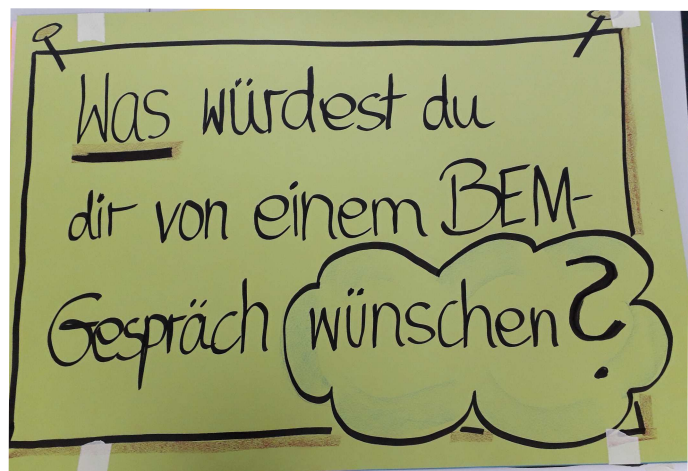 Was würdest du
dir von einem BEM-
Gespräch wünschen?